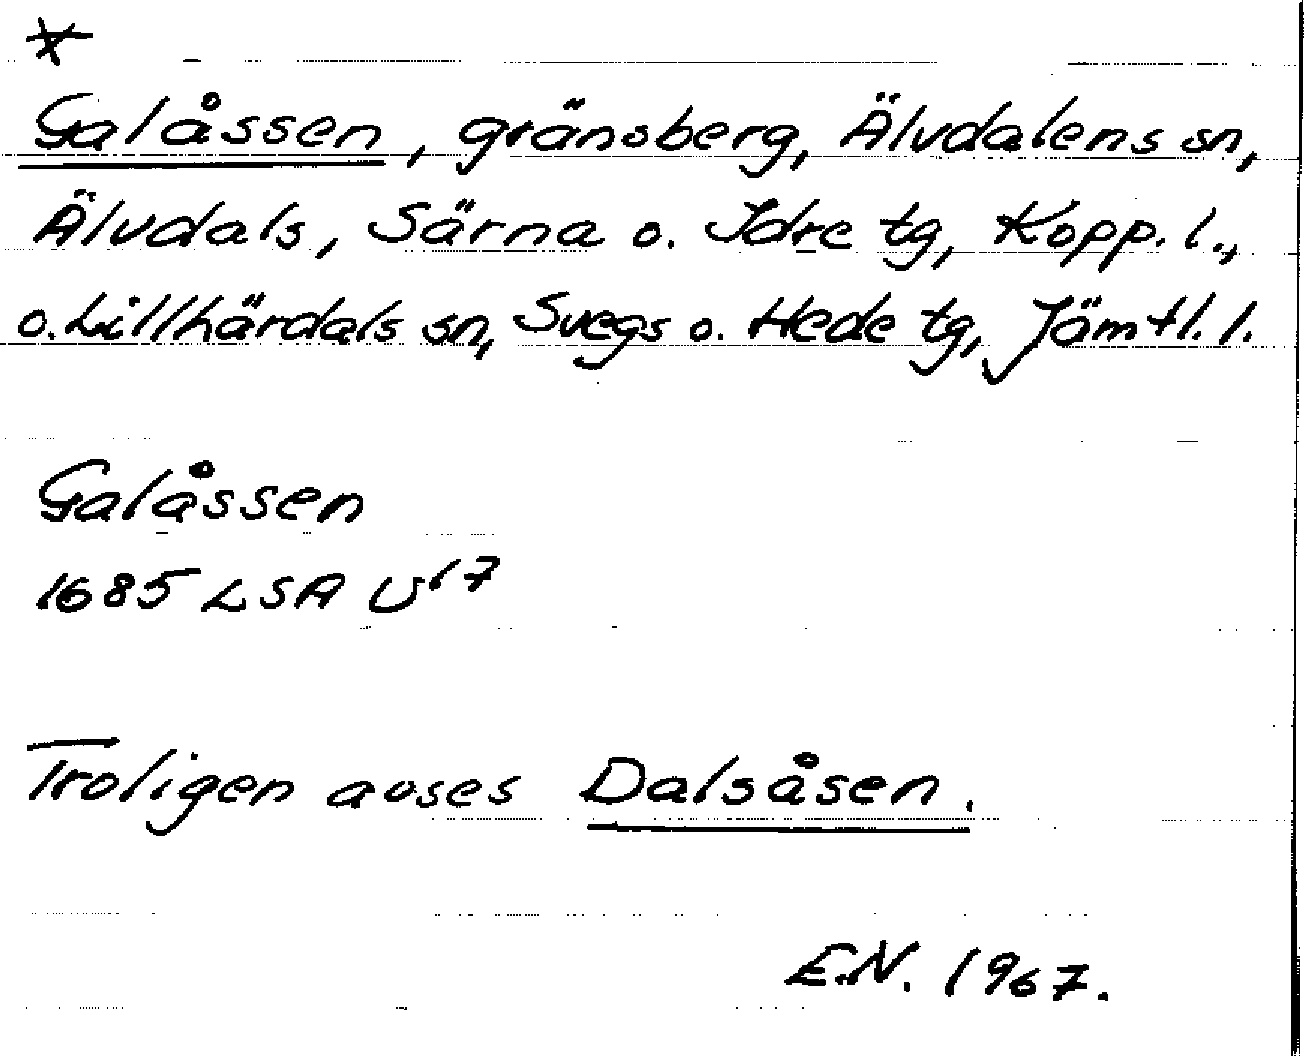 *
Galåssen, gränsberg, Älvdalens sn,
Älvdals, Särna o. Idre tg, Kopp. l.,
o. Lillhärdals sn, Svegs o. Hede tg, Jämtl. l.
Galåssen
1685 LSA U 17
Troligen avses Dalsåsen.
E.N. 1967.